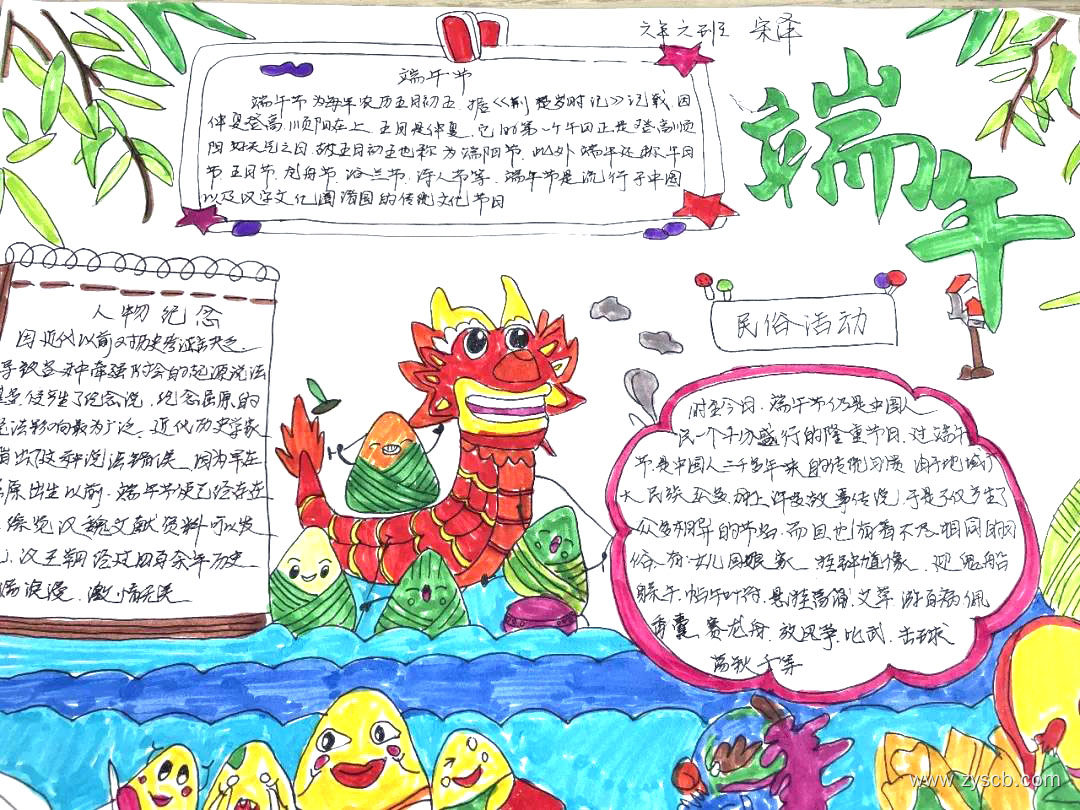 六年六班 宋泽
端午
端午节
端午节为每年农历五月初五,据《荆楚岁时记》记载,因
仲夏登高,顺阳在上,五月是仲夏,它的第一个午日正是登高顺
阳好天气之日,故五月初五也称为端阳节。此外端午还称午日
节、五月节、龙舟节、浴兰节、诗人节等。端午节是流行于中国
以及汉字文化圈诸国的传统文化节日
人物纪念
因近代以前对历史考证缺乏
导致各种牵强附会的起源说法
甚至产生了纪念说,纪念屈原的
说法影响最为广泛,近代历史学家
指出了这种说法错误 因为早在
屈原出生以前,端午节便已经存在
综览汉魏文献资料可以发
汉王朝经过四百余年历史
浪漫,激情
民俗活动
时至今日,端午节仍是中国人
民一个十分盛行的隆重节日,过端午
节是中国人二千多年来的传统习惯 由于地域广
大 民族众多 加上许多故事传说,于是不仅产生了
众多相异的节名,而且也有着不尽相同的习
俗,有:女儿回娘家 挂钟馗像 迎鬼船
躲午 帖午叶符,悬挂菖蒲、艾草 游百病 佩
香囊 赛龙舟,放风筝,比武,击球
荡秋千等
www.zyscb.com